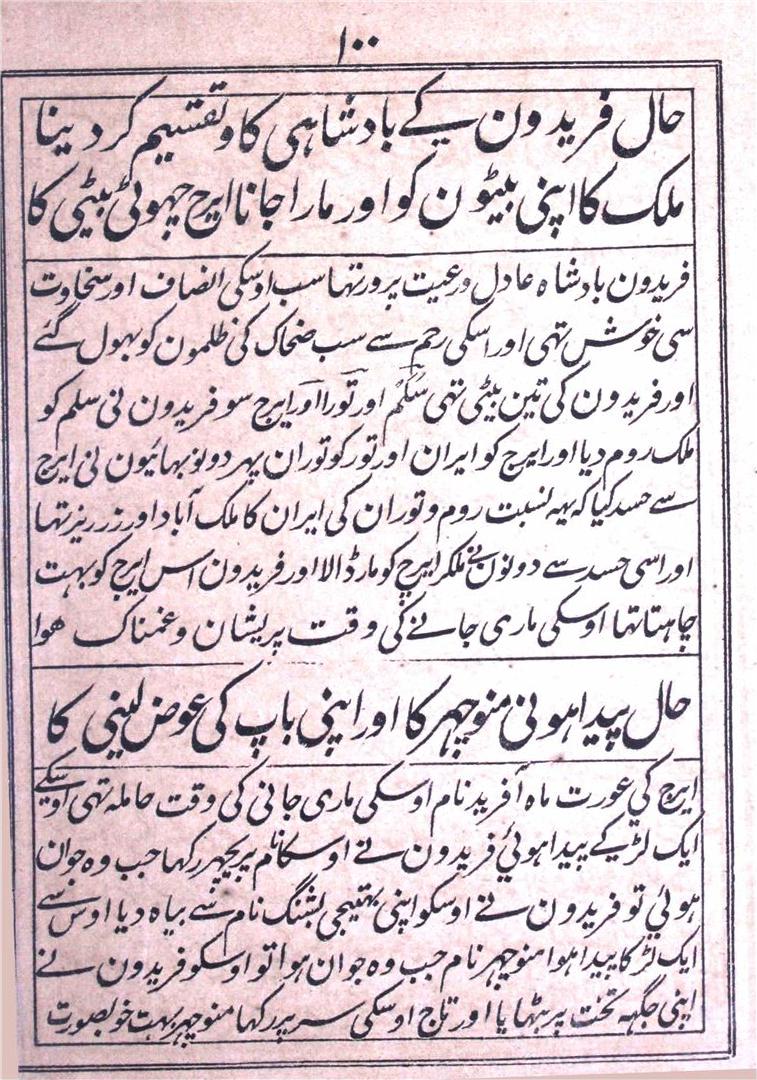 ۱۰۰
حال فریدون کے بادشاہی کا و تقسیم کر دینا
ملک کا اپنی بیٹون کو اور مارا جانا ایرج چہوٹی بیٹی کا
فریدون بادشاہ عادل و رعیت پرور تہا سب اوسکی انصاف اور سخاوت
سی خوش تہی اور اسکی رحم سے سب ضحاک کی ظلمون کو بہول گئے
اور فریدون کی تین بیٹی تہی سلم اور تور اور ایرج سو فریدون نی سلم کو
ملک روم دیا اور ایرج کو ایران اور تور کو توران پہر دونو بہائیون نی ایرج
سے حسد کیا کہ یہہ نسبت روم و توران کی ایران کا ملک آباد اور زرریز تہا
اور اسی حسد سے دونون نے ملکر ایرج کو مار ڈالا اور فریدون اس ایرج کو بہت
چاہتا تہا اوسکی ماری جانے کی وقت پریشان و غمناک ھوا
حال پیدا ہونی منوچہر کا اور اپنی باپ کی عوض لینی کا
ایرج کی عورت ماہ آفرید نام اوسکی ماری جانی کی وقت حاملہ تہی اوسکے
ایک لڑکے پیدا ہوئی فریدون نے اوسکا نام پریچہر رکہا جب وہ جوان
ہوئی تو فریدون نے اوسکو اپنی بہتیجی پشنگ نام سے بیاہ دیا اوس سے
ایک لڑکا پیدا ہوا منوچہر نام جب وہ جوان ہوا تو اوسکو فریدون نے
اپنی جگہہ تخت پر بٹہایا اور تاج اوسکی سر پر رکہا منوچہر بہت خوبصورت